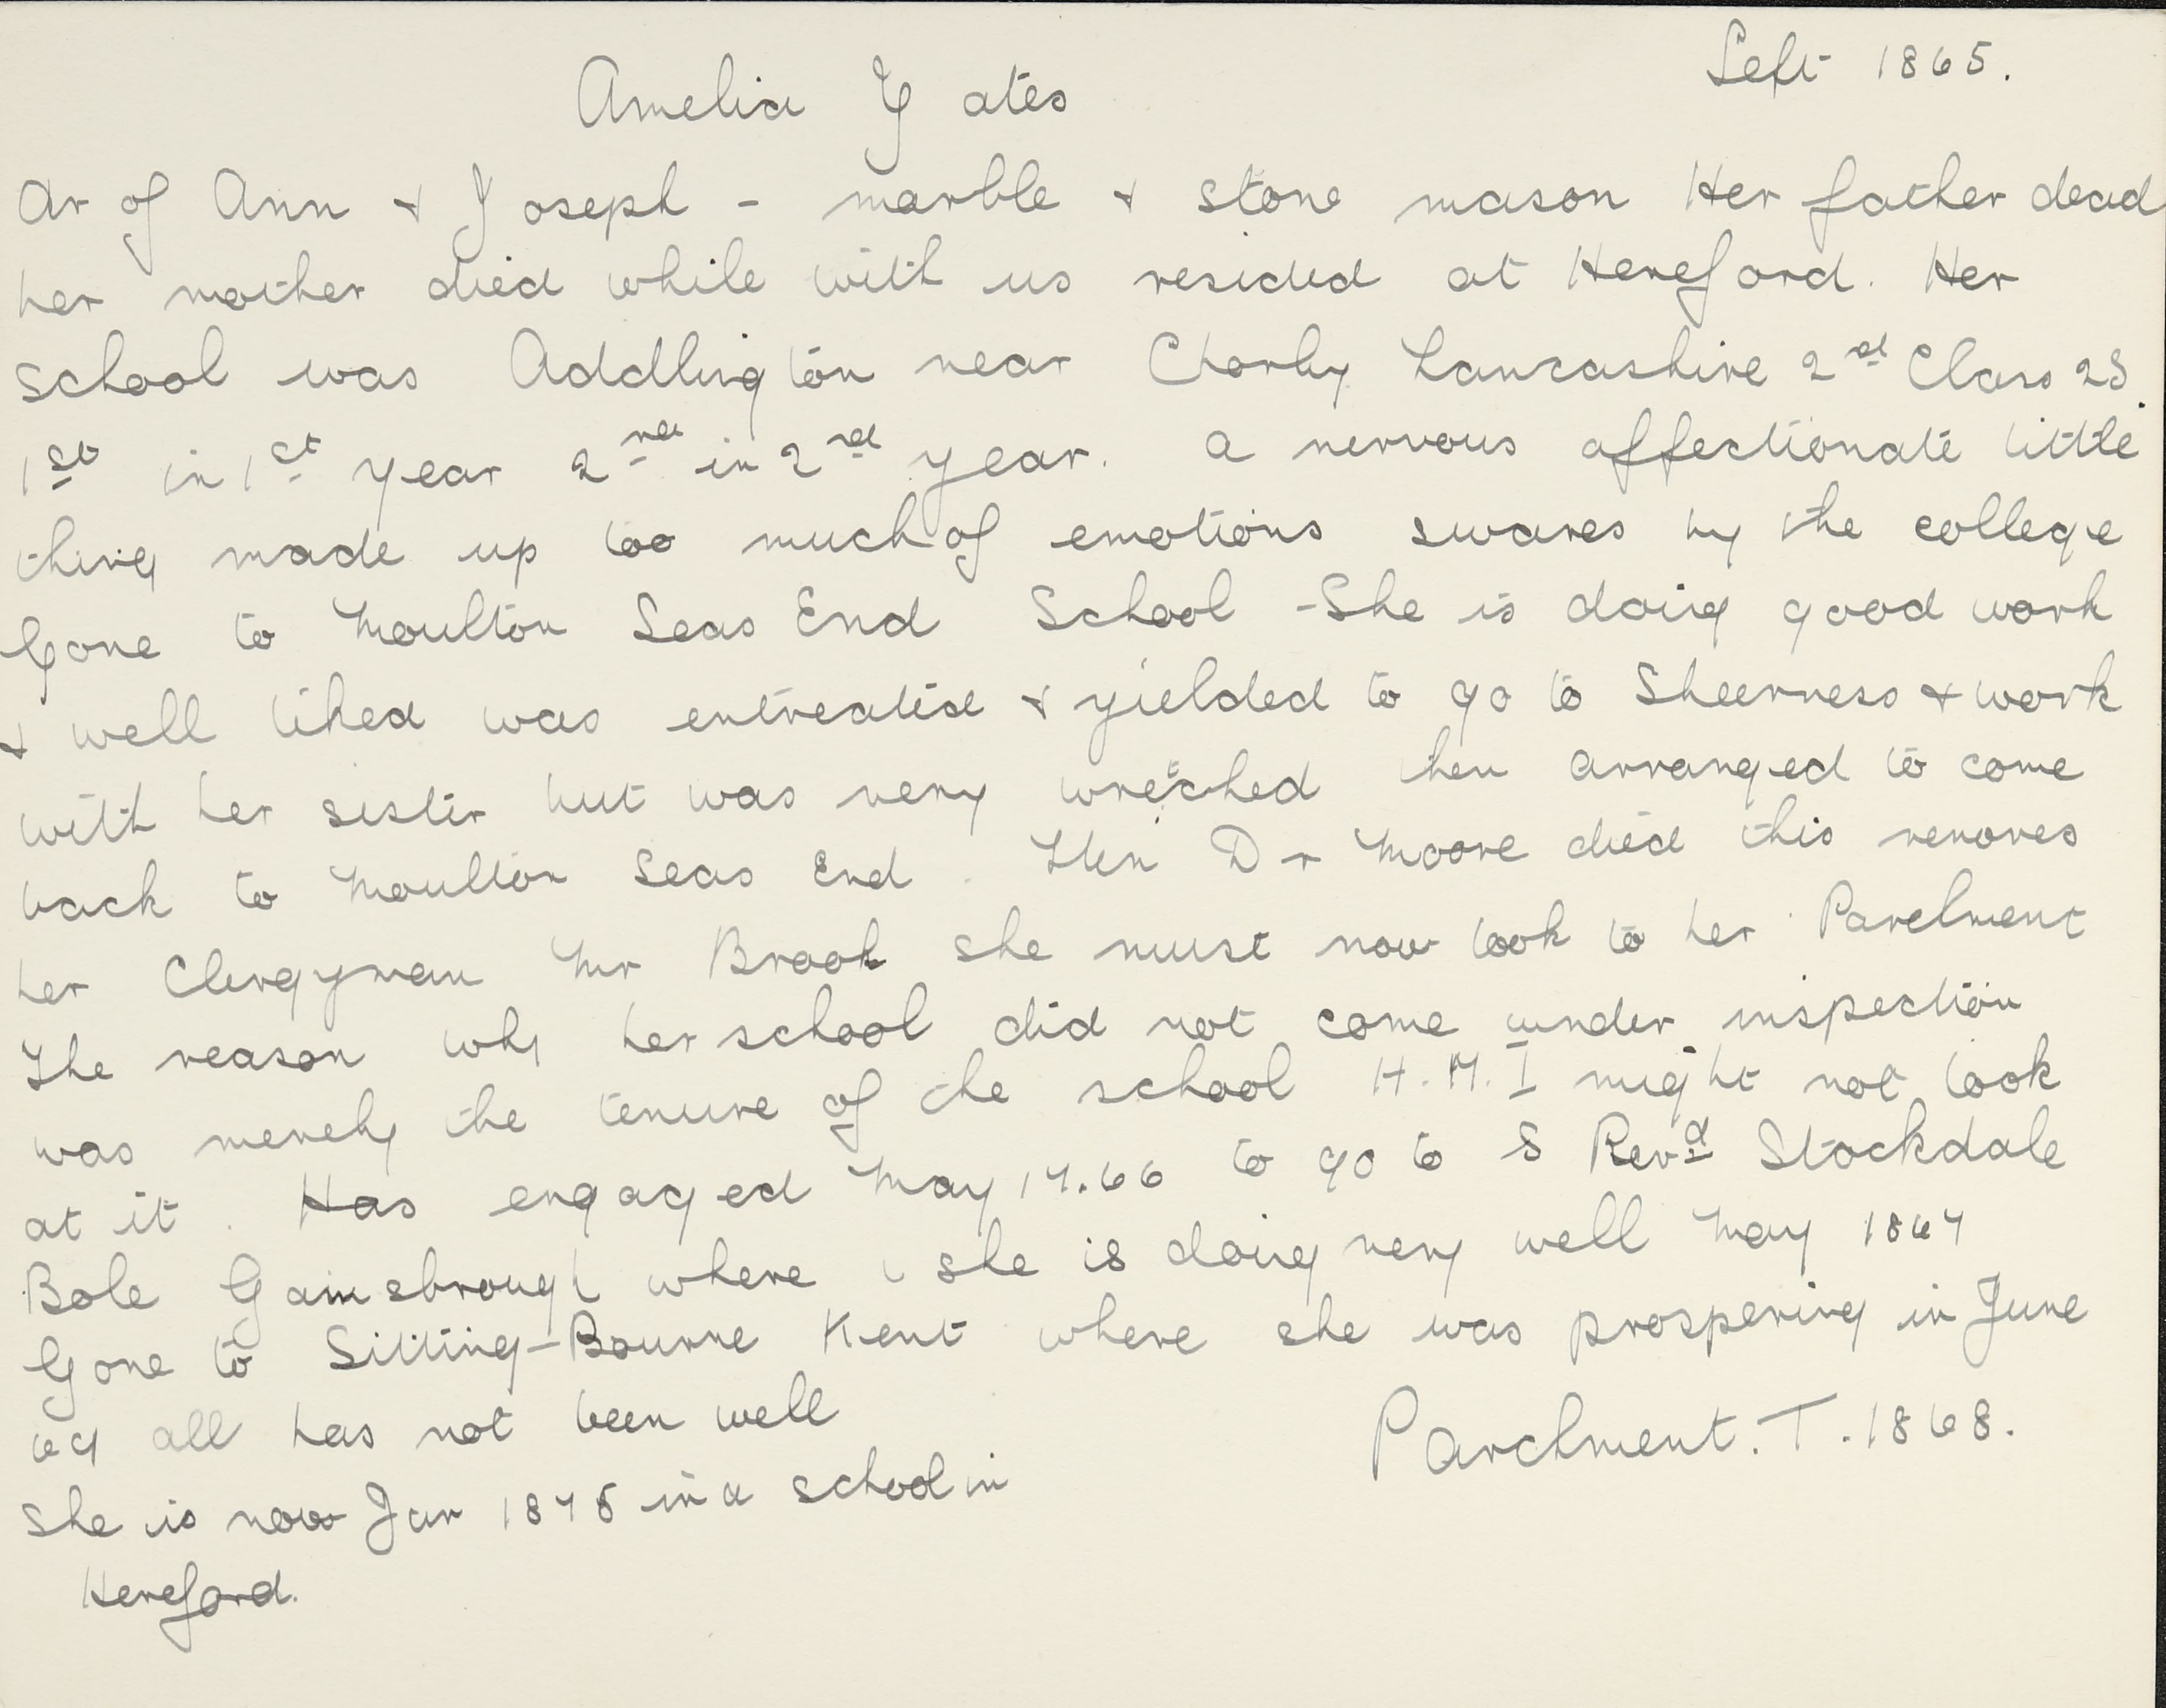 Left 1865.
Amelia Yates
Dr of Ann & Joseph - marble & stone mason Her father dead
her mother died while with us resided at Hereford. Her
school was Addlington near Chorly Lancashire 2nd Class 2S.
1st in 1st year 2nd in 2nd year. a nervous affectionate little
thing made up too much of emotions swares by the college
Gone to Moulton Seas End School - She is doing good work
& well liked was entreated & yielded to go to Sheerness & work
with her sister but was very wretched then arranged to come
back to Moulton Seas End. Then Dr Moore died this removes
her Clergyman Mr Brook she must now look to her Parchment
The reason why her school did not come under inspection
was merely the tenure of the school H.M.I might not look
at it. Has engaged May 17.66 to go to S Revd Stockdale
Bole Gainsbrough where she is doing very well May 1867
Gone to Sitting-Bourne Kent where she was prospering in June
69 all has not been well
Parchment. T. 1868.
She is now Jan 1875 in a school in
Hereford.